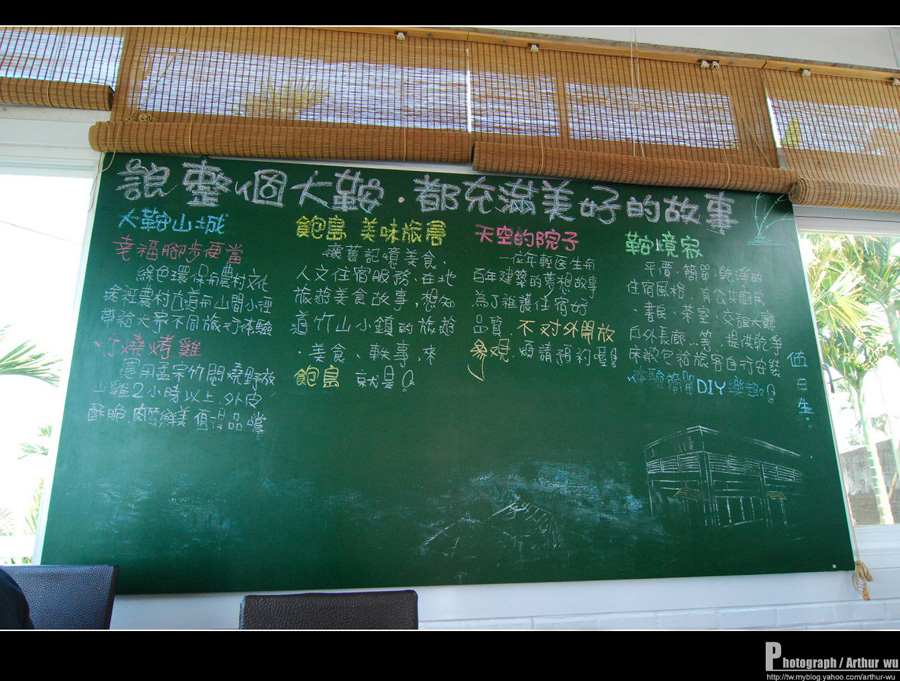 說整個大鞍·都充滿美好的故事
大鞍山城
幸福腳步便當
綠色環保有農村文化
農村 山間小徑
帶給大家不同旅行體驗
燒烤雞
運用孟宗竹悶燒野放
土雞2小時以上,外皮
酥脆,肉質鮮美 值得品嚐
飽島 美味旅宿
讓舊記憶美食、
人文住宿服務、在地
旅遊美食故事,想知
道竹山小鎮的旅遊
、美食、軼事,來
飽島 就是Q
天空的院子
一位年輕醫生用
百年建築的夢想故事
為了維護住宿好
品質,不対外開放
參觀.煩請預約喔!
鞍境寂
平價、簡單、乾淨的
住宿風格,有公共廚房
、書房、茶室、交誼大廳
戶外長廊...等,提供乾淨
床 包給旅客自行安裝
体驗簡單DIY樂趣
值日生:
Photograph / Arthur wu
http://tw.myblog.yahoo.com/arthur-wu